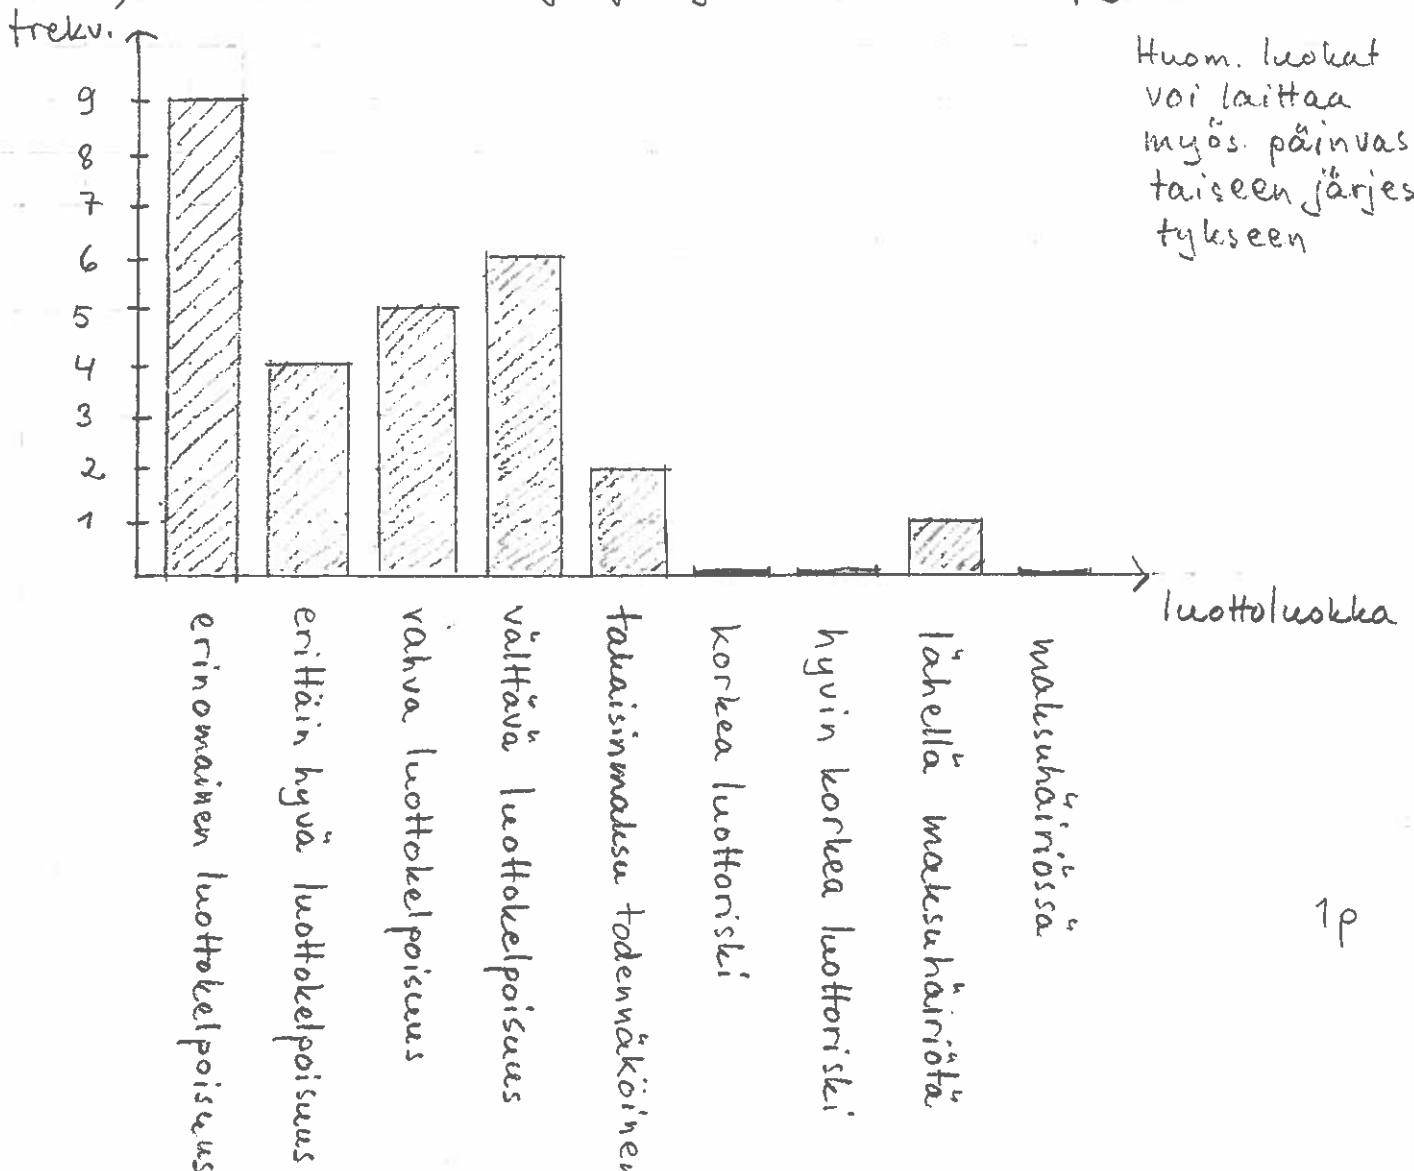 frekv.
Huom. luokat
voi laittaa
myös päinvas
taiseen järjes
tykseen
9
8
7
6
5
4
3
2
1
luottoluokka
erinomainen luottokelpoisuus
erittäin hyvä luottokelpoisuus
vahva luottokelpoisuus
välttävä luottokelpoisuus
takaisinmaksu todennäköinen
korkea luottoriski
hyvin korkea luottoriski
lähellä maksuhäiriötä
maksuhäiriössä
1p